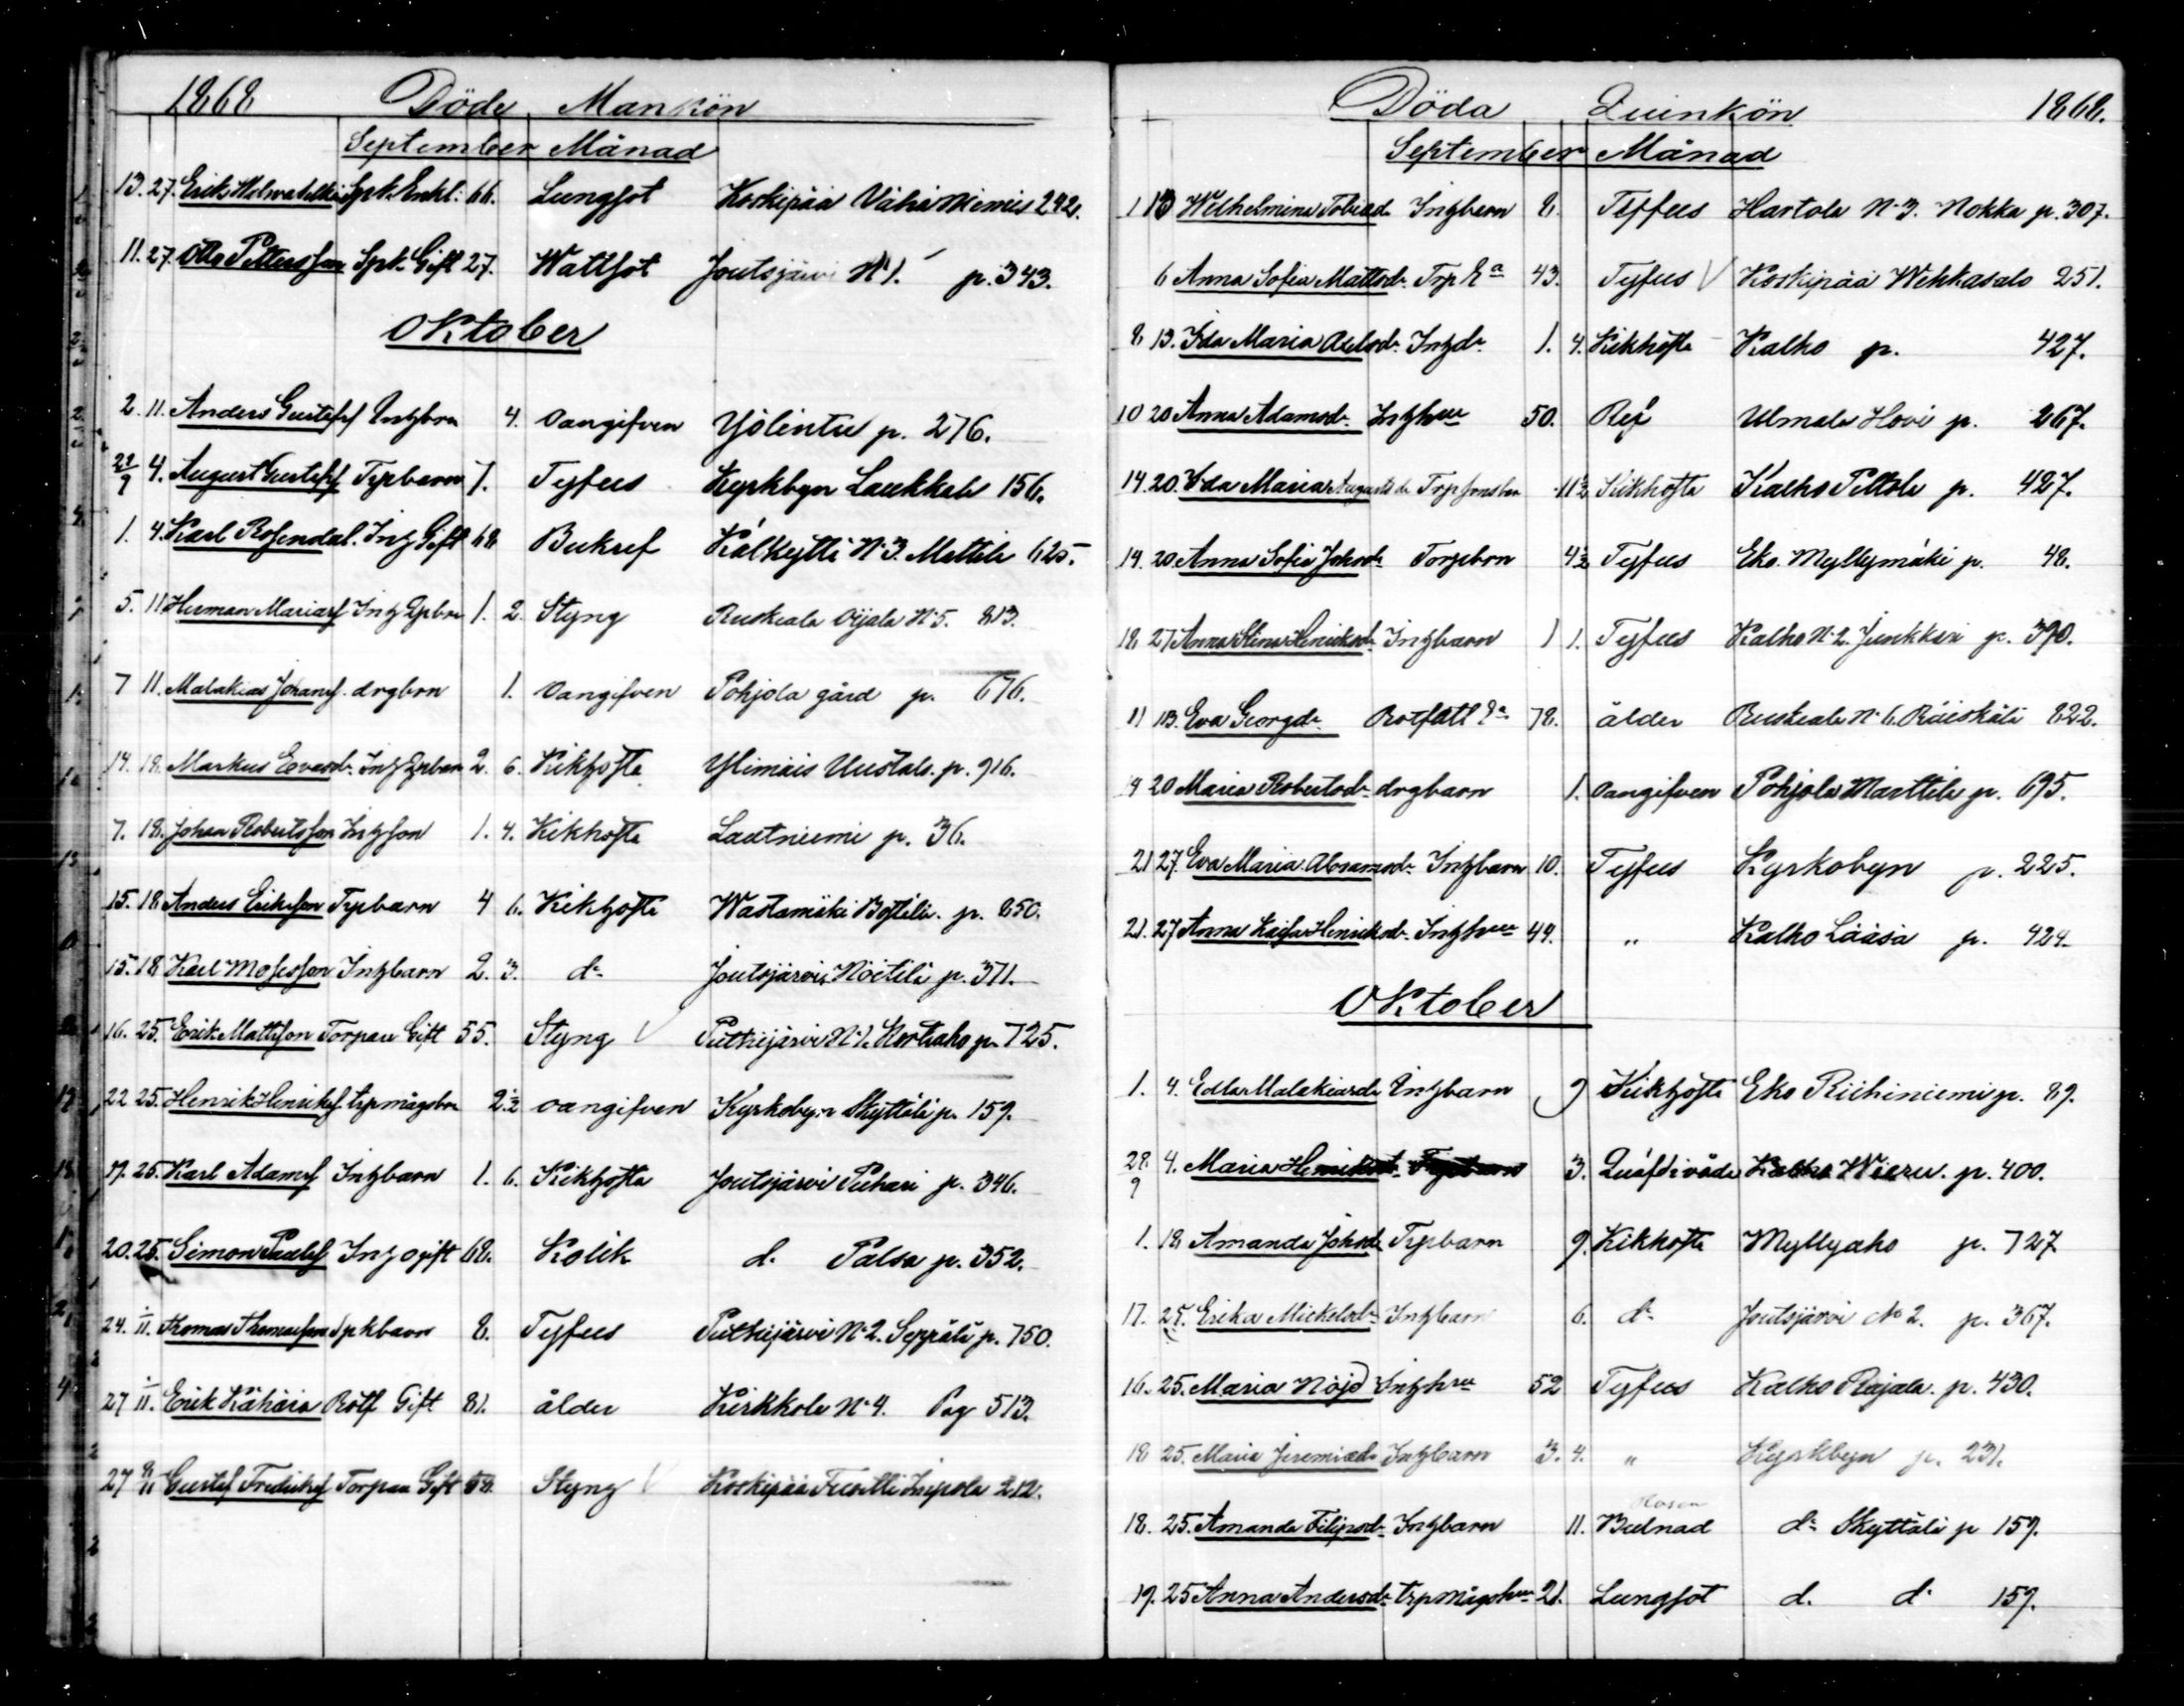 1868 Döde Mankön
September Månad
13. 27. Erik Spk. Enkl: 66. Lungsot Koskipää Vähä Nemis 292.
11. 27. Otto Pettersson Spk. Gift 27. Wattsot Joutsjärvi N 1. p. 343.
Oktober
2. 11. Anders Gustafsf Inhbrn 4. Oangifven Yölintu p. 276.
4. August Gustafsf Trpbarn 1. Tyfus Kyrkbyn Laukkala 156.
1. 4. Karl Rosendal. Inh Gift 68 Bukref Kalkytti N:3. Mattila 625.
5. 11. Herman Mariasf Inh 1. 2. Styng Ruskeala Ojala N:5. 813.
7 11. Malakias Johansf. drgbrn 1. Oangifven Pohjola gård p. 676.
14. 18. Markus Evasd. Inh 2. 6. Kikhosta Ylimäis Uustalo. p. 916.
7. 18. Johan Robertsson Inhson 1. 4. Kikhosta Lautniemi p. 36.
15. 18 Anders Eriksson Trpbarn 4 6. Kikhosta Wastamäki p. 850.
15. 18 Karl Mosesson Inhbarn 2. 3. d:o Joutsjärvi p. 371.
16. 25. Erik Mattsson Torpare Gift 55. Styng V Putkijärvi N:1. p. 725.
22 25. Henrik Henriksf. trpmågsbrn 2 1/2 oangifven Kyrkobyn Skyttälä p. 159.
19. 25. Karl Adamsf Inhbarn 1. 6. Kikhosta Joutsjärvi Puhari p. 346.
20. 25. Simon Paulsf Inh ogift 68. Kolik d. Palsa p. 352.
24. 1/11. Thomas Thomasson Spkbarn 8. Tyfus Putkijärvi N:2. Seppälä p. 750.
27 1/11. Erik Kähärä Rotf Gift 81. ålder Kirkkola N:4. Pag 513.
27 8/11 Gustaf Fredriksf Torpare Gift Styng V Koskipää 212.
Döda Quinkön 1868.
September Månad
1 13 Wilhelmina Tobiasd. Inhbarn 8. Tyfus Hartola N:3. Nokka p. 307.
6 Anna Sofia Mattsd:r Trp E:a 43. Tyfus V Koskipää Wehkasalo 251.
8 13. Ida Maria Inhd:r 1. 4. Kikhosta Kalho p. 427.
10 20 Anna Adamsd:r Inhhru 50. Ref Ulmala Hovi p. 267.
14. 20. Ida Maria Augustsdr 11 1/2 Kikhosta Kalho Pellola p. 427.
14. 20. Anna Sofia Johsd:r Torpbrn 4 1/2 Tyfus Eko. Myllymäki p. 48.
18. 27 Anna Stina Henriksd:r Inhbarn 1 1. Tyfus Kalho N:2. Junkkari p. 390.
11 13. Eva Georgd:r Rotfatt E:a 78. ålder Ruskeala N:6. Räiskälä 822.
14 20 Maria Robertsd:r drgbarn 1. Oangifven Pohjola Marttila p. 695.
21 27. Eva Maria Abramsd:r Inhbarn 10. Tyfus Kyrkobyn p. 225.
21. 27 Anna Kaisa Henriksd:r Inhhru 44. " Kalho Lääsä p. 424.
Oktober
1. 4. Edla Malakiasdr Inhbarn 9 Kikhosta Eko Riihiniemi p. 89.
28/9 4. Maria Henriksd. 3. Quäfd i våda Kalho Wieru. p. 400.
1. 18. Amanda Johsd:r Trpbarn 9. Kikhosta Myllyaho p. 727
17. 25. Erika Mickelsd:r Inhbarn 6. d:o Joutsjärvi No 2. p. 367.
16. 25. Maria Nöjd Inhhru 52 Tyfus Kalho Rajala p. 430.
18 25. Maria Jeremiæd:r Inhbarn 3. 4. " Kyrkbyn p. 231.
18. 25. Amanda Filipsd:r Inhbarn 11. Bulnad d:o Skyttälä p 159.
19. 25 Anna Andersd:r trpmågshru 21. Lungsot d. d:o 159.